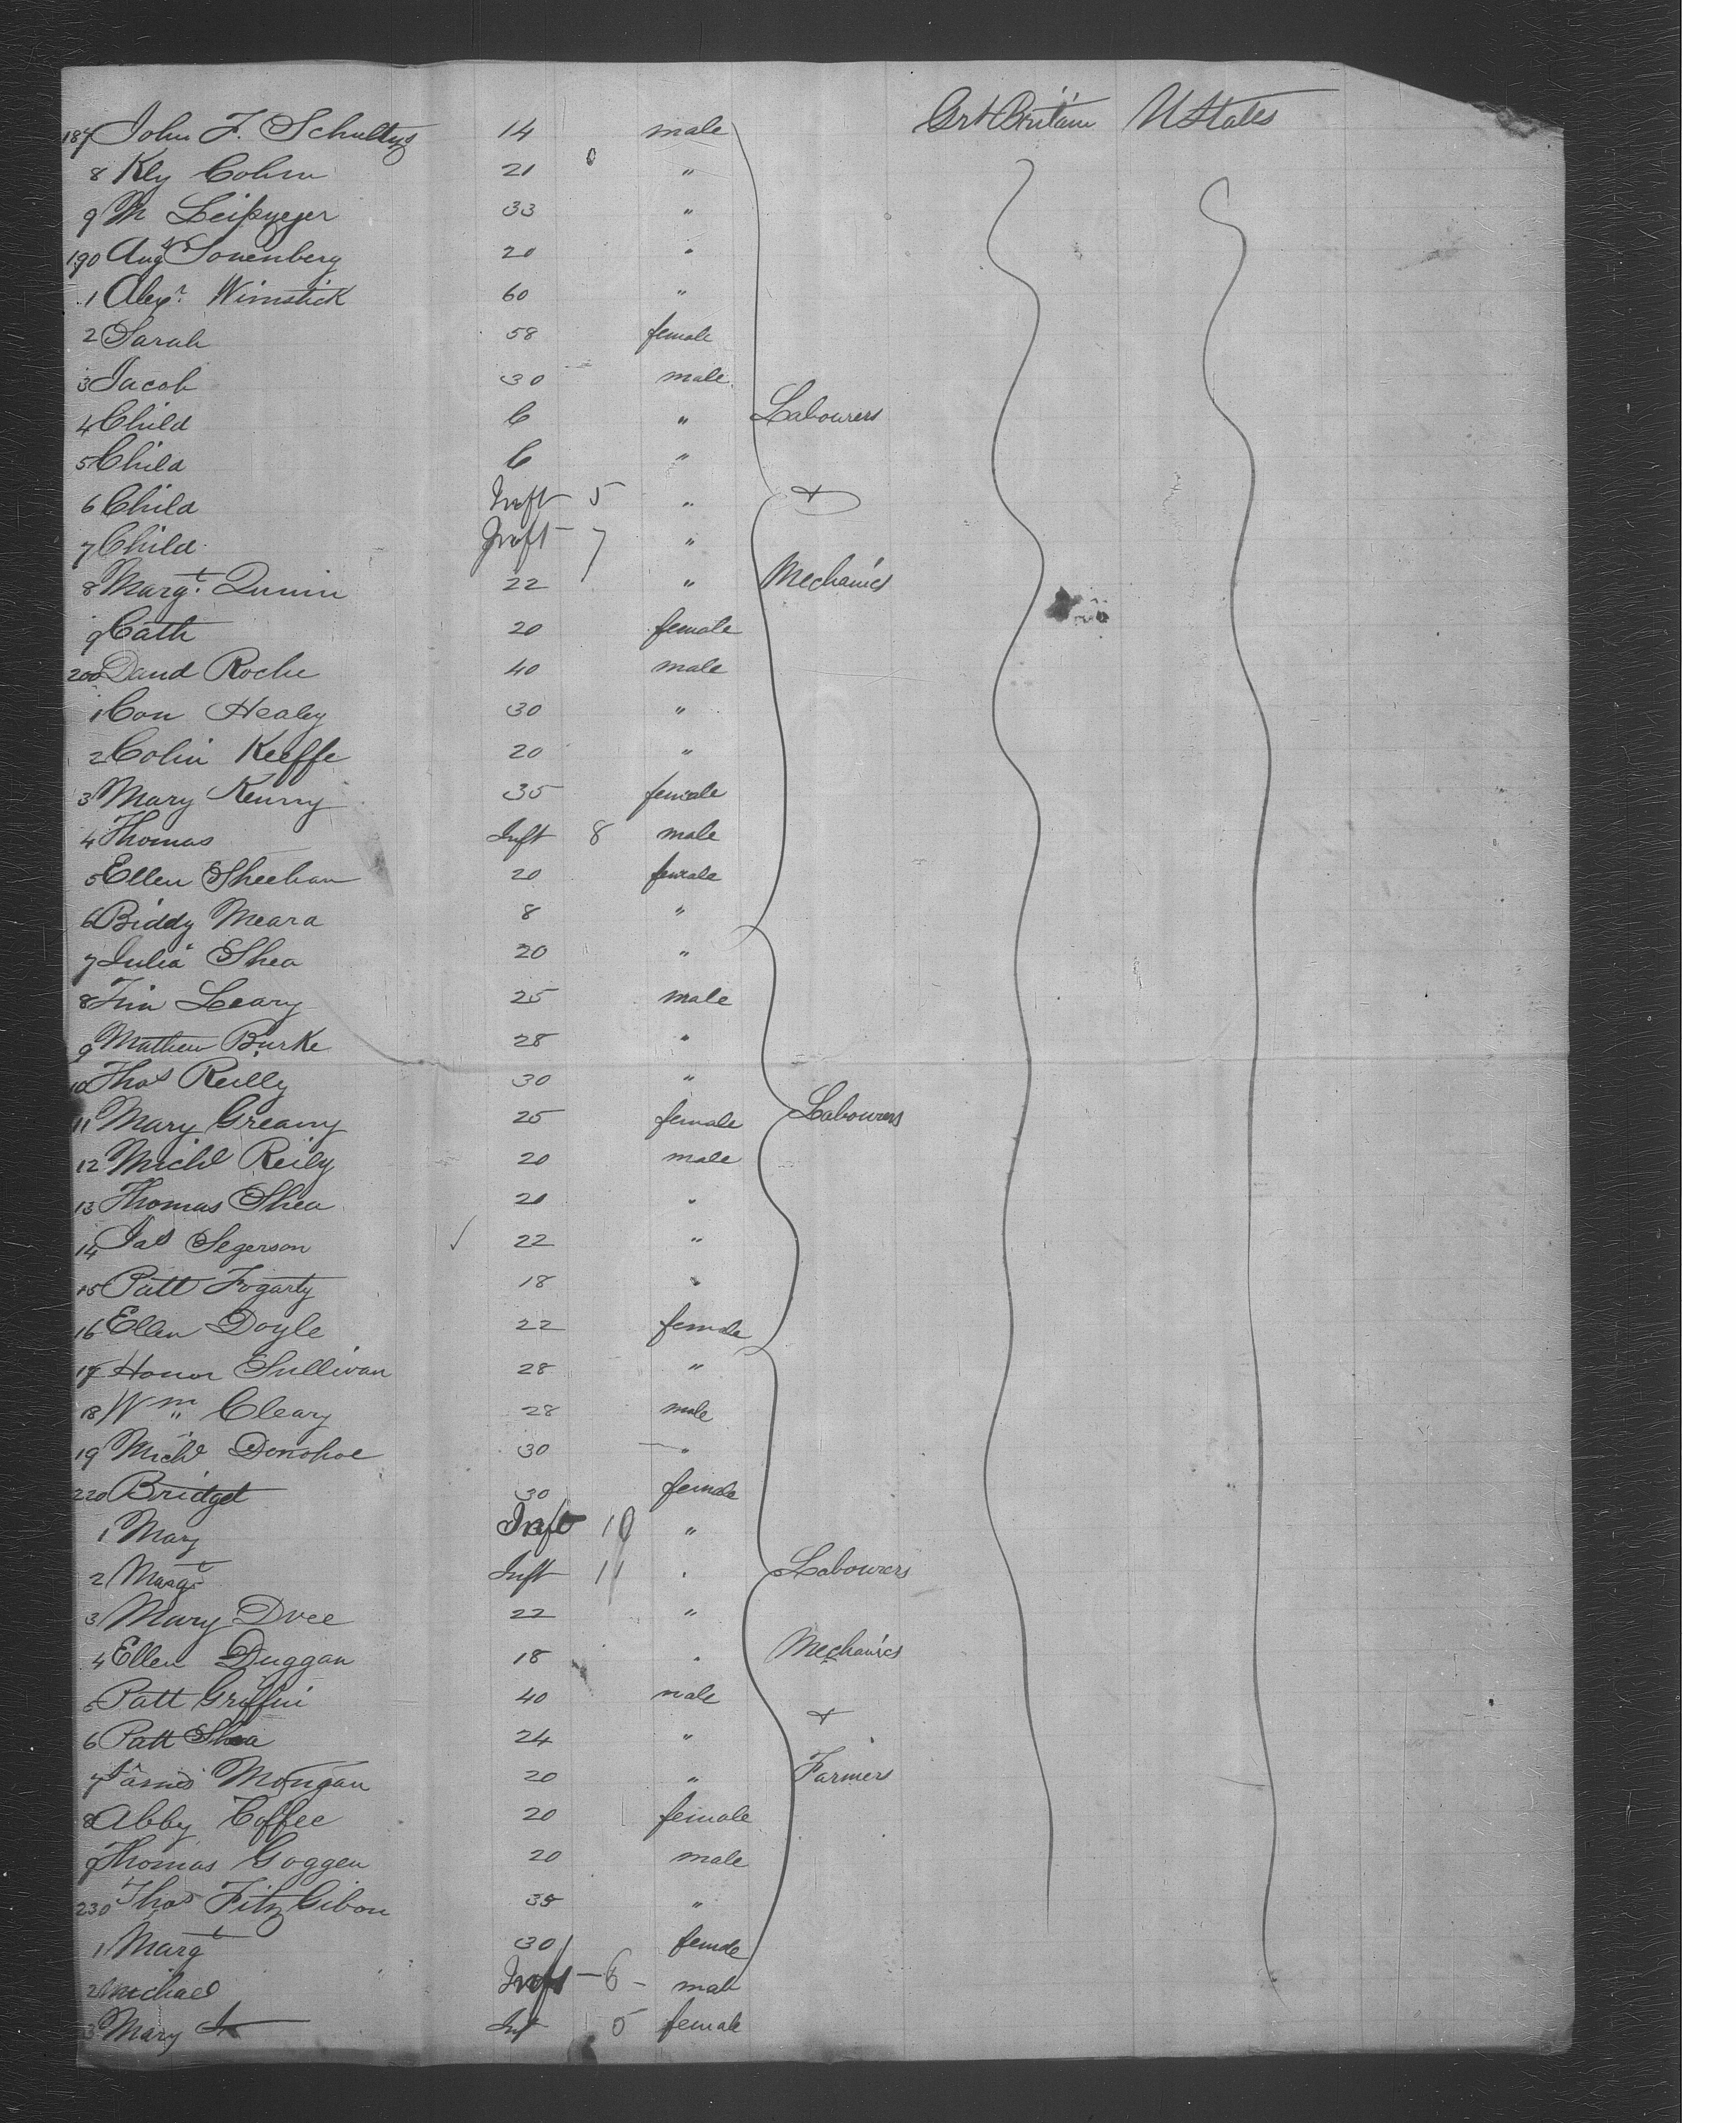 Grt Britain U States
187 John F. Schultys 14 male
8 Kly Cohen 21 "
9 M Leipzeger 33 "
190 Augs Sonenberg 20 "
1 Alexr. Wimstick 60 "
2 Sarah 58 female
3 Jacob 30 male
4 Child 6 " Labourers
5 Child 6 "
6 Child Inft 5 " +
7 Child Inft 7 "
8 Margt. Quinn 22 " Mechanics
9 Cath 20 female
200 David Roche 40 male
1 Con Healey 30 "
2 Colin Keeffe 20 "
3 Mary Kenny 35 female
4 Thomas Inft 8 male
5 Ellen Sheehan 20 female
6 Biddy Meara 8 "
7 Julia Shea 20 "
8 Tim Leary 25 male
9 Mathew Burke 28 "
10 Thos Reilly 30 "
11 Mary Greany 25 female Labourers
12 Michl Reily 20 male
13 Thomas Shea 21 "
14 Jas Segerson ✓ 22 "
15 Patt Fogarty 18 "
16 Ellen Doyle 22 female
17 Honor Sullivan 28 "
18 Wm Cleary 28 male
19 Michl Donohoe 30 "
220 Bridget 30 female
1 Mary Inft 10 "
2 Margt Inft 11 " Labourers
3 Mary Dree 22 "
4 Ellen Duggan 18 " Mechanics
5 Patt Griffin 40 male
6 Patt Shea 24 " +
7 James Mongan 20 " Farmers
8 Abby Coffee 20 female
9 Thomas Goggen 20 male
230 Thos FitzGibon 35 "
1 Margt 30 female
2 Michael Inft - 6 - male
3 Mary Inft 5 female